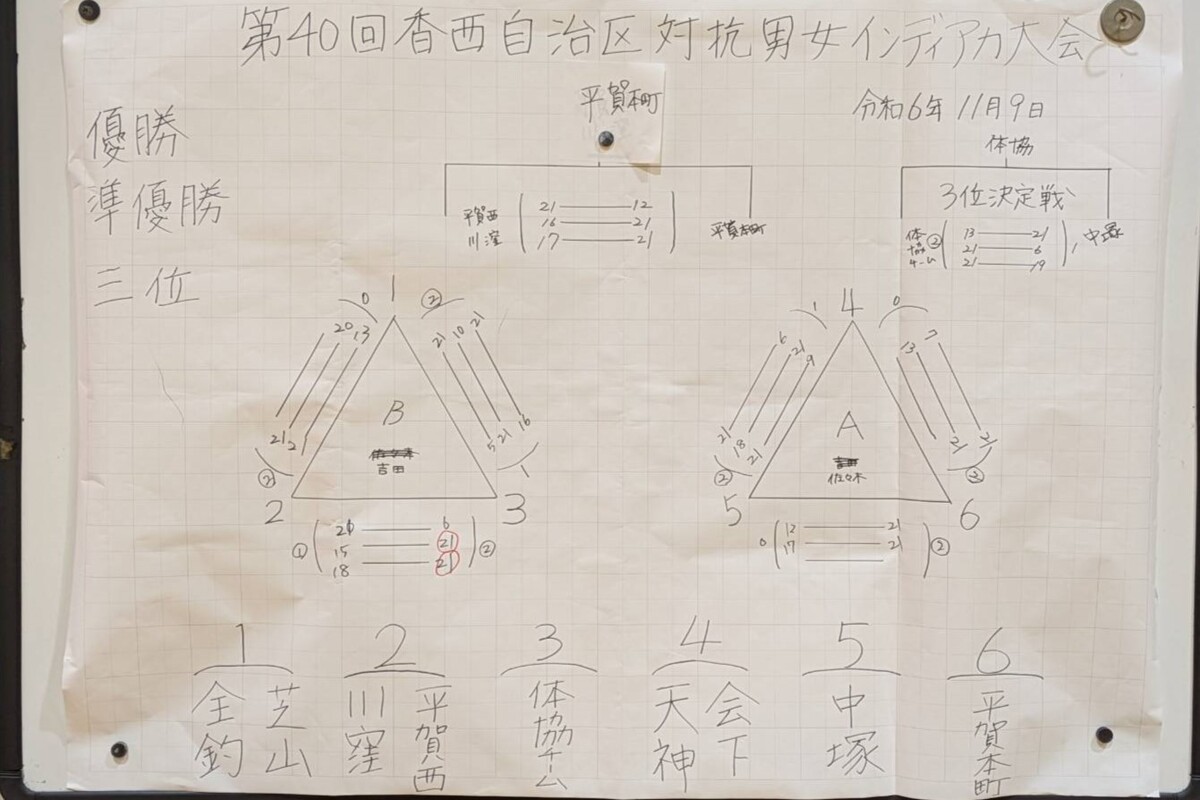 第40回香西自治区対抗男女インディアカ大会
令和6年11月9日
優勝
準優勝
三位
平賀本町
平賀西
川窪
21 12
16 21
17 21
平賀本町
体協
3位決定戦
体協チーム
②
13 21
21 6
21 19
中塚
1
0
②
20 13
21 21
②
21 10 21
5 21 16
1
B
吉田
2
3
①
21 6
15 21
18 21
②
4
1
0
6 21 9
21 18 21
②
13 7
21 21
②
A
佐々木
5
6
0
12 21
17 21
②
1
芝山
全釣
2
平賀西
川窪
3
体協チーム
4
会下
天神
5
中塚
6
平賀本町